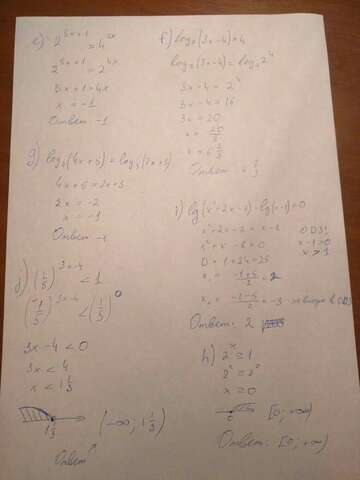 e) 2^(5x+1) = 4^(2x)
2^(5x+1) = 2^(4x)
5x+1=4x
x = -1
Ответ -1
f) log₂(3x-4)=4
log₂(3x-4) = log₂2⁴
3x-4 = 2⁴
3x-4=16
3x=20
x = 20/3
x = 6 2/3
Ответ 6 2/3
g) log₃(4x+5) = log₃(2x+3)
4x+5=2x+3
2x = -2
x = -1
Ответ -1
i) lg(x²+2x-7)-lg(x-1)=0
x²+2x-7 = x-1
x²+x-6=0
D = 1+24=25
x₁ = (-1+5)/2 = 2
x₂ = (-1-5)/2 = -3 - не входит в ОДЗ
ОДЗ:
x-1>0
x>1
Ответ: 2
j) (1/5)^(3x-4) < 1
(1/5)^(3x-4) < (1/5)^0
3x-4<0
3x<4
x < 1 1/3
1 1/3
(-∞, 1 1/3)
Ответ
h) 2^x ≥ 1
2^x ≥ 2^0
x ≥ 0
0
[0; +∞)
Ответ: [0; +∞)